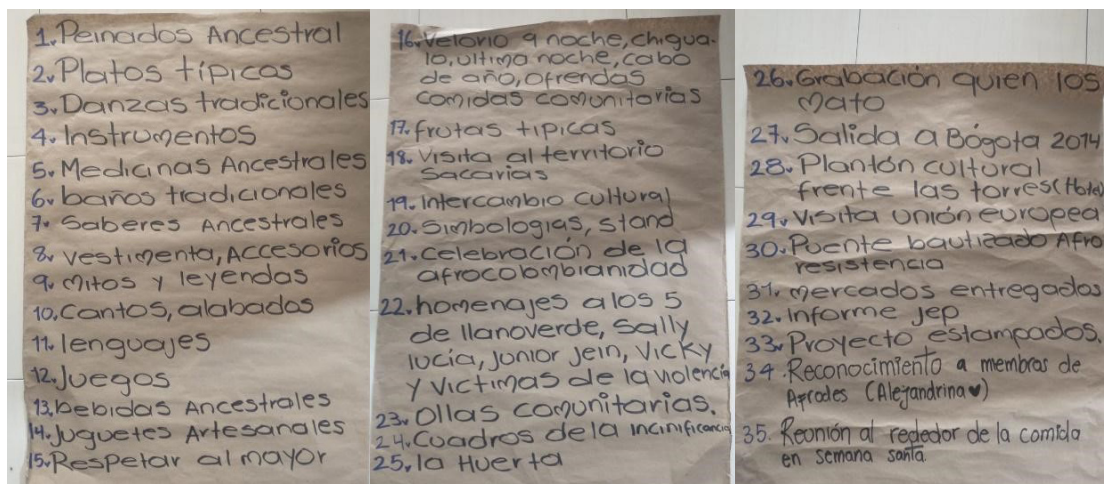 1. Peinados Ancestral
2. Platos típicos
3. Danzas tradicionales
4. Instrumentos
5. Medicinas Ancestrales
6. baños tradicionales
7. Saberes Ancestrales
8. vestimenta, Accesorios
9. mitos y leyendas
10. Cantos, alabados
11. lenguajes
12. Juegos
13. bebidas Ancestrales
14. Juguetes Artesanales
15. Respetar al mayor
16. Velorio 9 noche, chigua-
lo, ultima noche, cabo
de año, ofrendas
comidas comunitarias
17. frutas tipicas
18. Visita al territorio
Sacarias
19. Intercambio cultural
20. Simbologias, stand
21. celebración de la
afrocolombianidad
22. homenajes a los 5
de llanoverde, Sally
lucía, Junior Jein, Vicky
y victimas de la violencia
23. Ollas comunitarias.
24. Cuadros de la incinificancia
25. la Huerta
26. Grabación quien los
mato
27. Salida a Bógota 2014
28. Plantón cultural
frente las torres (Hotel)
29. Visita unión europea
30. Puente bautizado Afro
resistencia
31. mercados entregados
32. Informe Jep
33. Proyecto estampados.
34. Reconocimiento a membros de
Aprodes (Alejandrina ♥)
35. Reonión al rededor de la comida
en semana santa.